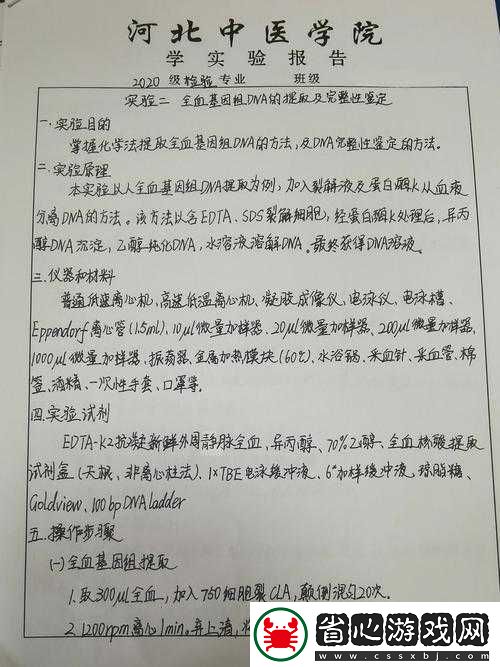 河北中医学院
学实验报告
2020 级检验专业 班级
实验二 全血基因组DNA的提取及完整性鉴定
一.实验目的
掌握化学法提取全血基因组DNA的方法,及DNA完整性鉴定的方法。
二.实验原理
本实验以人全血基因组DNA提取为例,加入裂解液及蛋白酶K从血液
分离DNA的方法。该方法以含EDTA、SDS裂解细胞,经蛋白酶K处理后,异丙
醇DNA沉淀,乙醇纯化DNA,水溶液溶解DNA。最终获得DNA溶液。
三.仪器和材料
普通低速离心机、高速低温离心机、凝胶成像仪、电泳仪、电泳槽、
Eppendorf离心管(1.5ml)、10μl微量加样器、20μl微量加样器、200μl微量加样器、
1000μl微量加样器、振荡器、金属加热模块(60℃)、水浴锅、采血针、采血管、棉
签、酒精、一次性手套、口罩等.
四.实验试剂
EDTA-K2抗凝新鲜外周静脉全血、异丙醇、70%乙醇、全血核酸提取
试剂盒(天根、非离心柱法)、1×TBE电泳缓冲液、6*加样缓冲液、琼脂糖、
Goldview、100bp DNA ladder
五.操作步骤
(一)全血基因组提取
1.取300μl全血,加入750细胞裂CLA,颠倒混匀20次.
2.1200rpm离心1min.弃上清,
省心游戏网
www.cssxbj.com